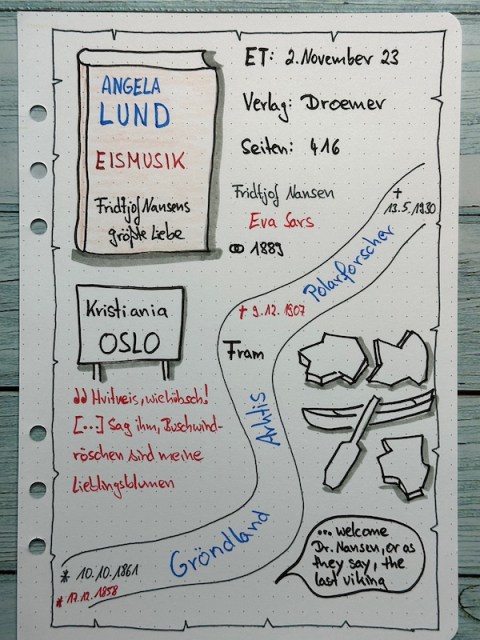 ANGELA
LUND
EISMUSIK
Fridtjof Nansens
größte Liebe
ET: 2. November 23
Verlag: Droemer
Seiten: 416
Fridtjof Nansen
Eva Sars
⚭ 1889
† 13.5.1930
Polarforscher
† 9.12.1907
Kristiania
OSLO
Fram
Arktis
„ Hvitveis, wie hübsch!
[...] Sag ihm, Buschwind-
röschen sind meine
Lieblingsblumen
Gröndland
* 10.10.1861
* 17.12.1858
... welcome
Dr. Nansen, or as
they say, the
last viking